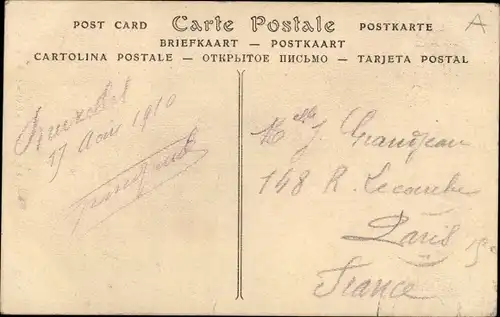 POST CARD Carte Postale POSTKARTE
BRIEFKAART — POSTKAART
CARTOLINA POSTALE — ОТКРЫТОЕ ПИСЬМО — TARJETA POSTAL
A
17 Août 1910
Melle J. Grandjean
148 R. Lecourbe
Paris 15e
France